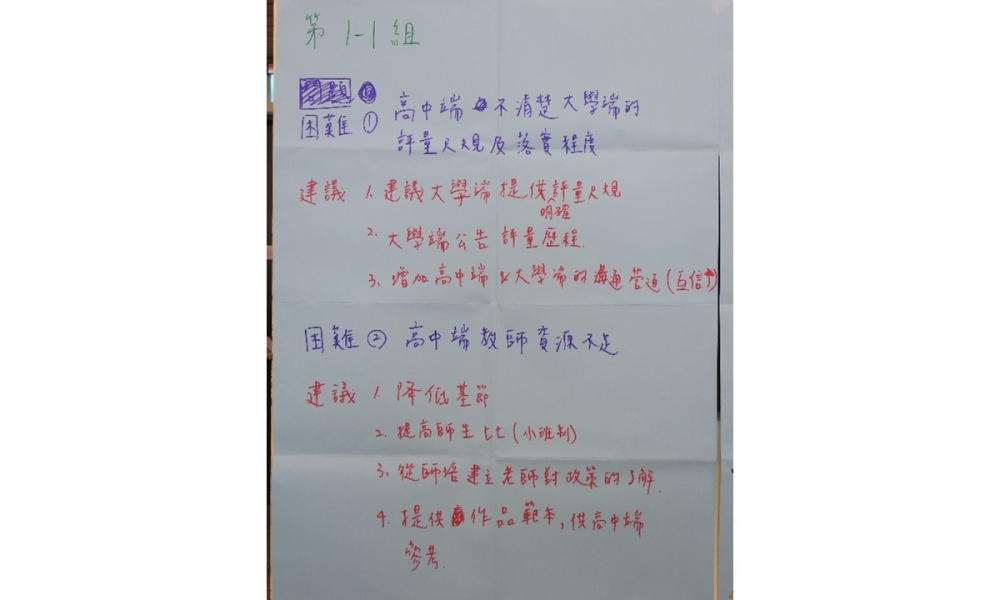 第 1-1 組
困難 ① 高中端 不清楚大學端的
評量尺規及落實程度
建議 1. 建議大學端提供評量尺規
明確
2. 大學端公告評量歷程.
3. 增加高中端&大學端的溝通管道(互信↑)
困難 ② 高中端教師資源不足
建議 1. 降低基節
2. 提高師生比(小班制)
3. 從師培建立老師對政策的了解.
4. 提供作品範本,供高中端
參考.